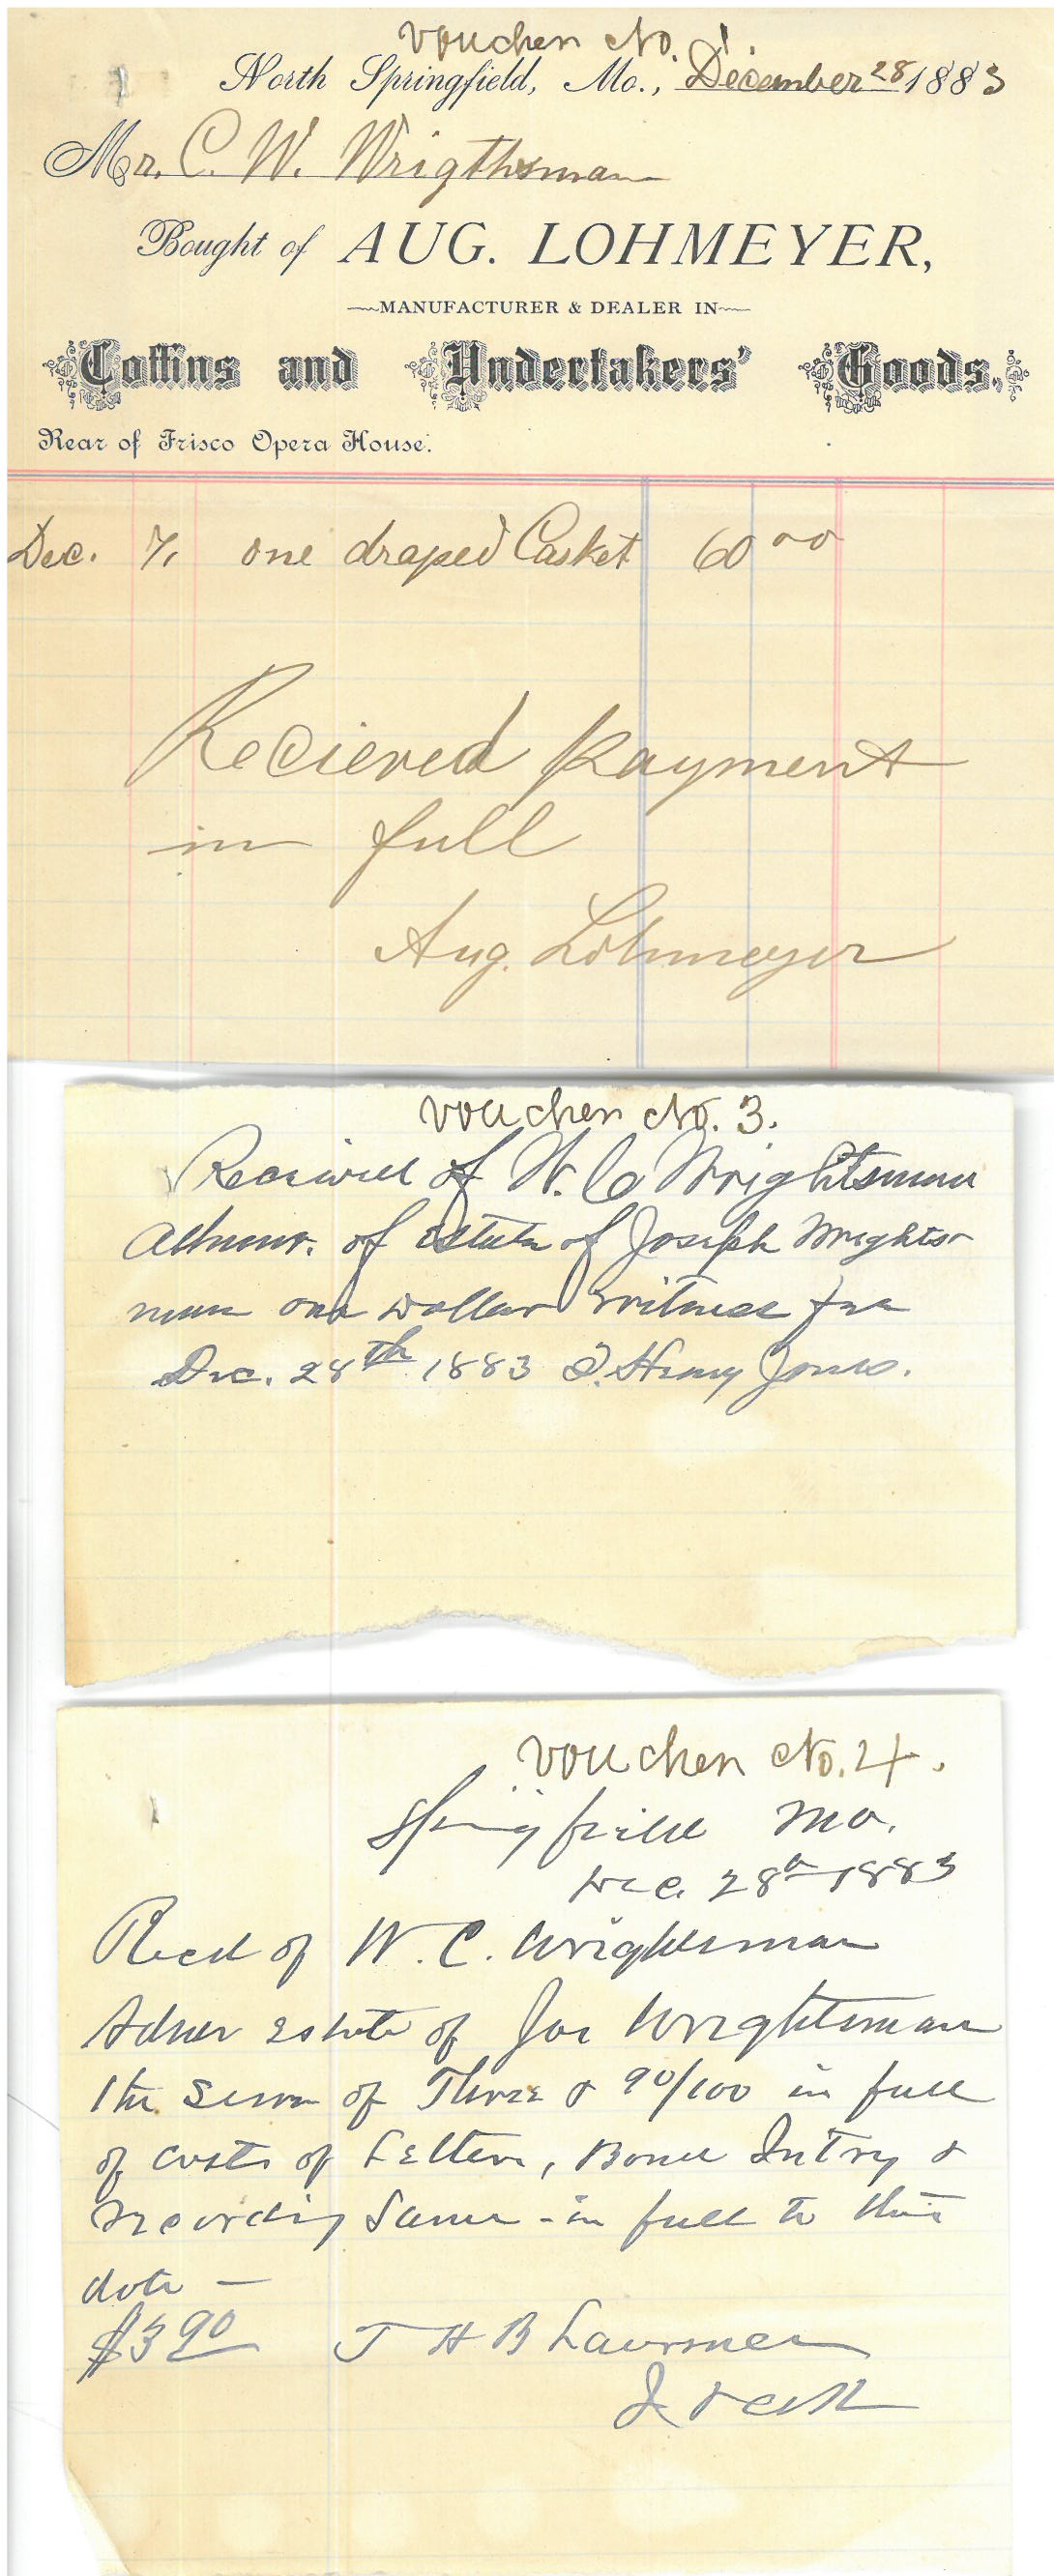 Voucher No. 1.
North Springfield, Mo., December 28 1883
Mr. C. W. Wrigthsman
Bought of AUG. LOHMEYER,
MANUFACTURER & DEALER IN
Coffins and Undertakers' Goods.
Rear of Frisco Opera House.
Dec. 7, one draped Casket 60 00
Recieved payment
in full
Aug. Lohmeyer
Voucher No. 3.
Received of W. C Wrightsman
of Estate of Joseph Wrights-
man one Dollar Witness fee
Dec. 28th 1883 Henry Jones.
Voucher No. 4.
Springfield Mo.
Dec. 28th 1883
Recd of W. C. Wrightsman
Admr Estate of Joe Wrightsman
the Sum of Three & 90/100 in full
of costs of Letters, Bond Intry &
recording Same - in full to this
date —
$3 90 J H B